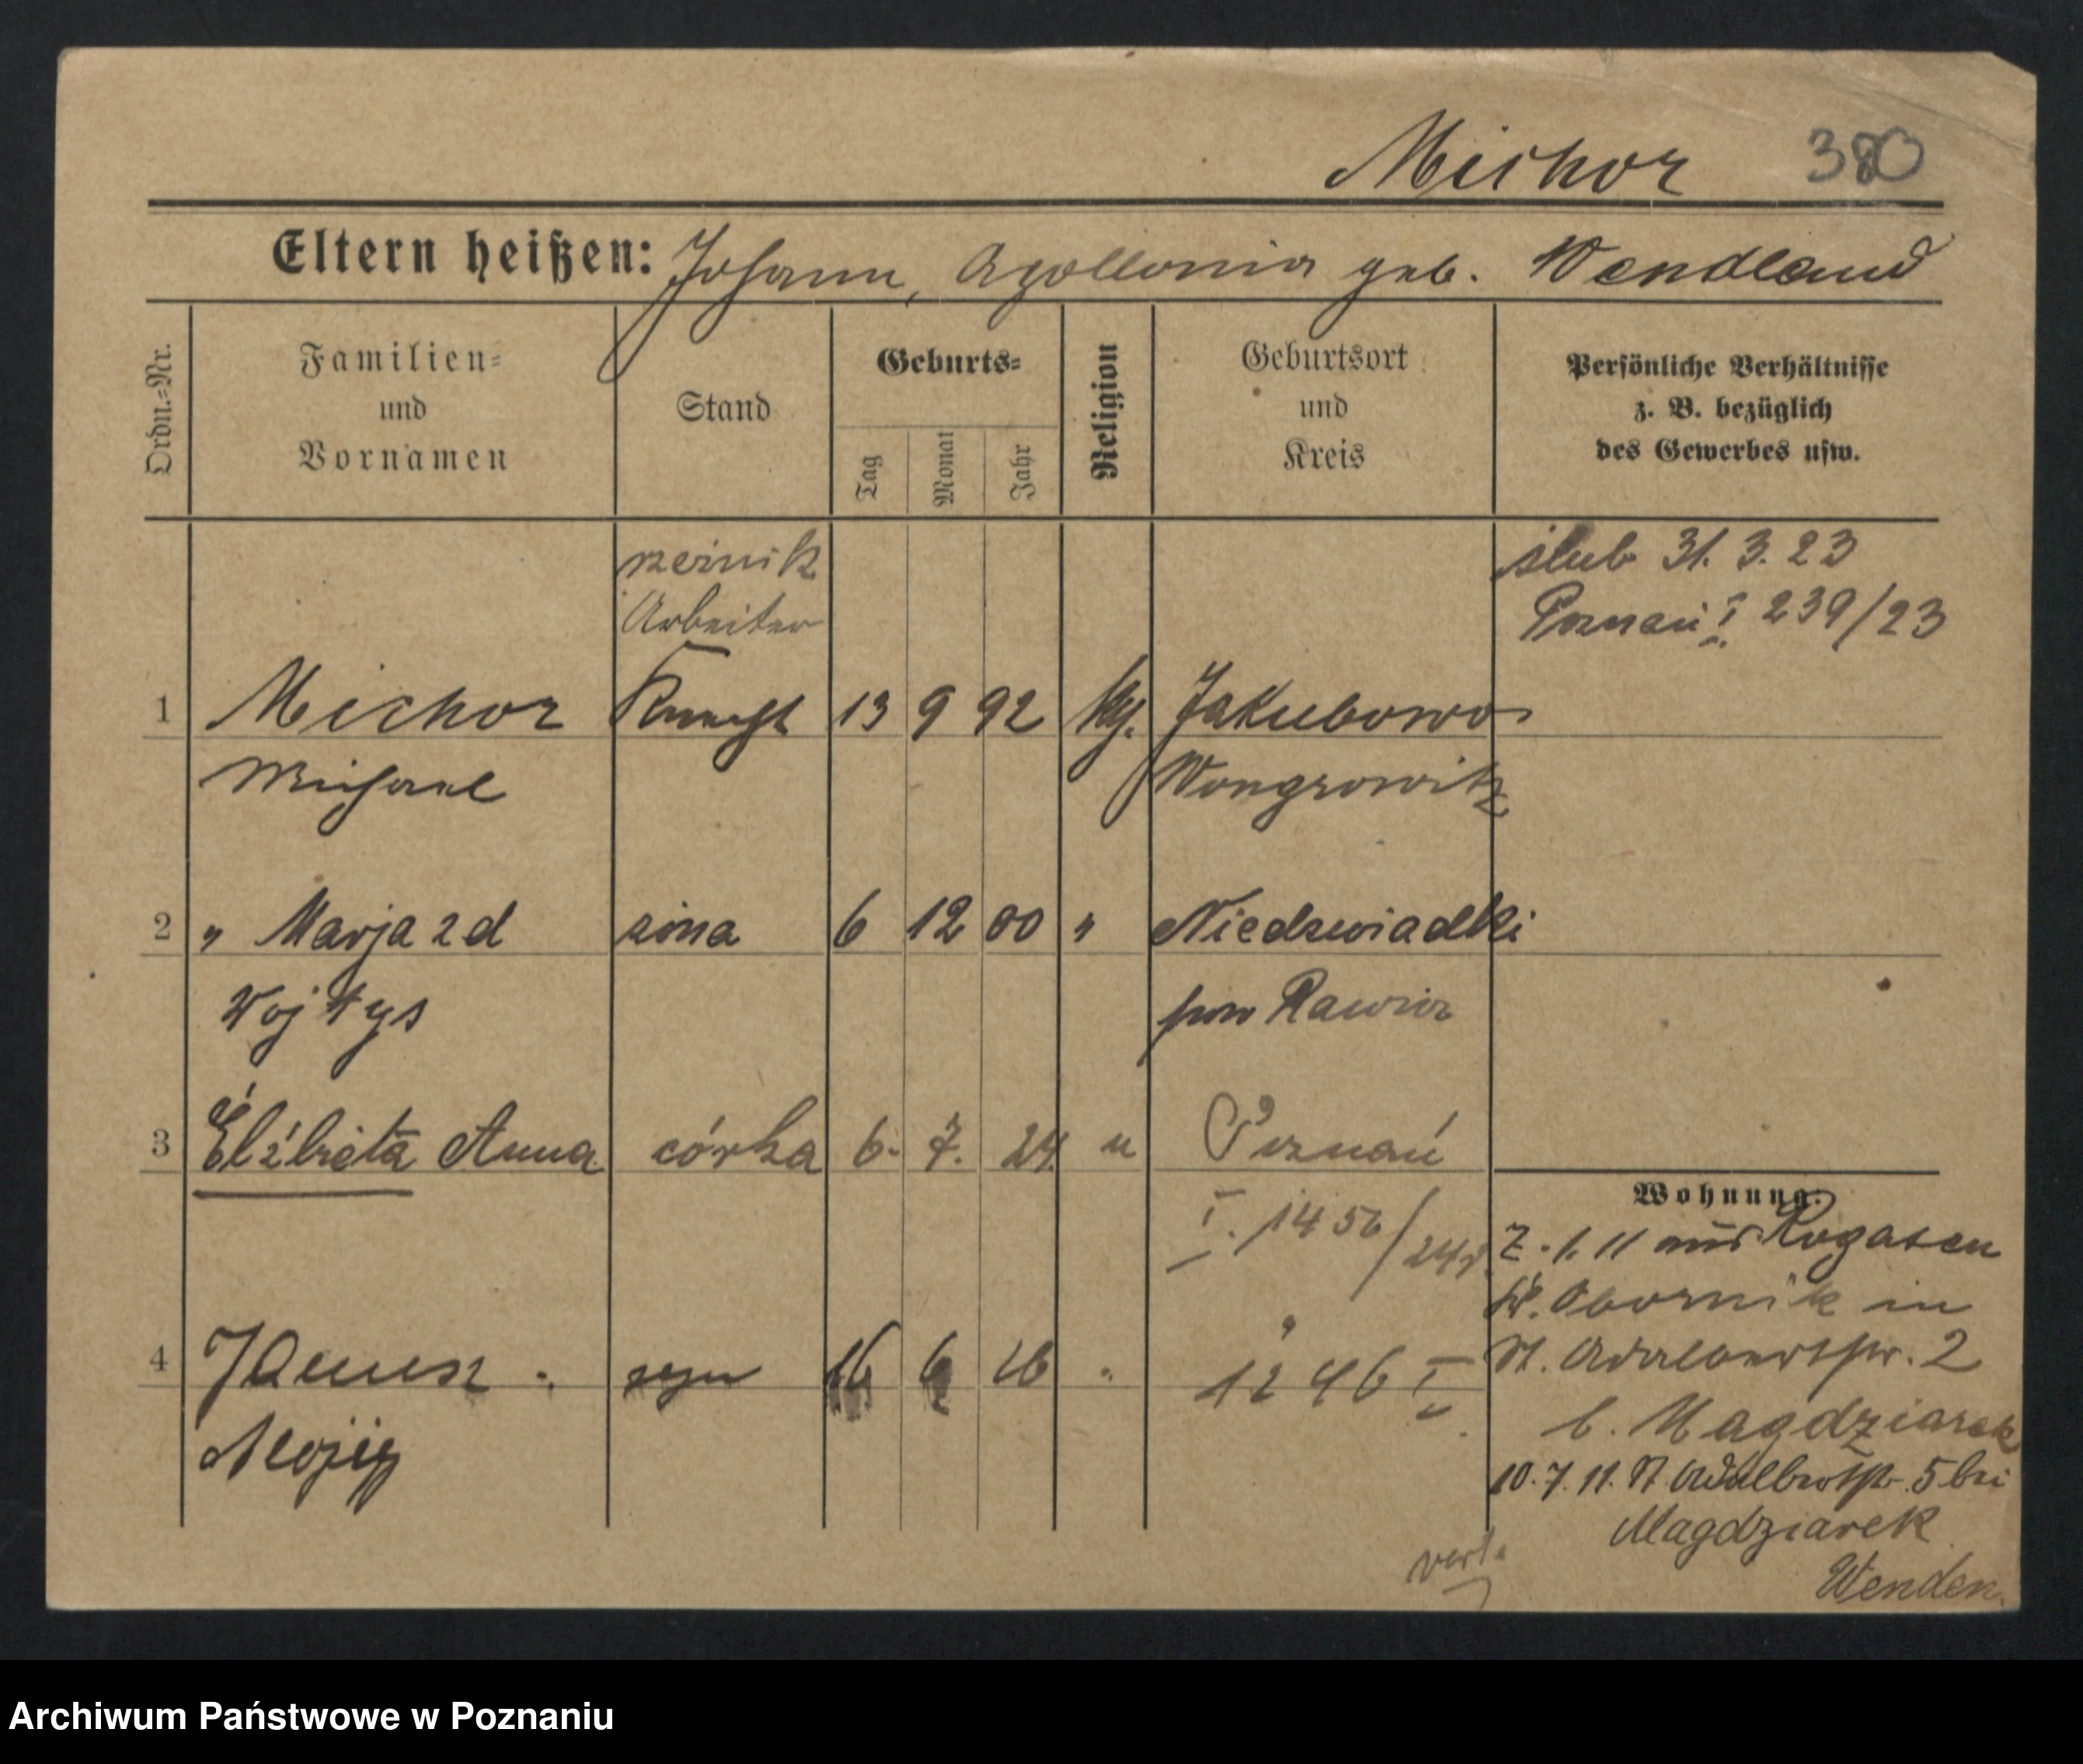 Michor 380
Eltern heißen: Johann, Apollonia geb. Wendland
Ordn.=Nr.
Familien=
und
Vornamen
Stand
Geburts=
Tag
Monat
Jahr
Religion
Geburtsort
und
Kreis
Persönliche Verhältnisse
z. B. bezüglich
des Gewerbes usw.
rzeźnik
Arbeiter
ślub 31. 3. 23
Poznań I 239/23
1 Michor Knecht 13 9 92 kg. Jakubowo
Michael Wongrowitz
2 " Marja zd żona 6 12 00 " Niedzwiadki
Wojtys pow Rawicz
3 Elżbieta Anna córka 6. 7. 24 " Poznań
I. 1456/24
4 Janusz syn 16 6 26 " 1246 I
Alojzy
Wohnung:
Z. 1. 11 aus Rogasen
Kr. Obornik in
St. Adalbertstr. 2
b. Magdziarek
10. 7. 11. St. Adalbertstr. 5 bei
Magdziarek
Wenden.
Archiwum Państwowe w Poznaniu